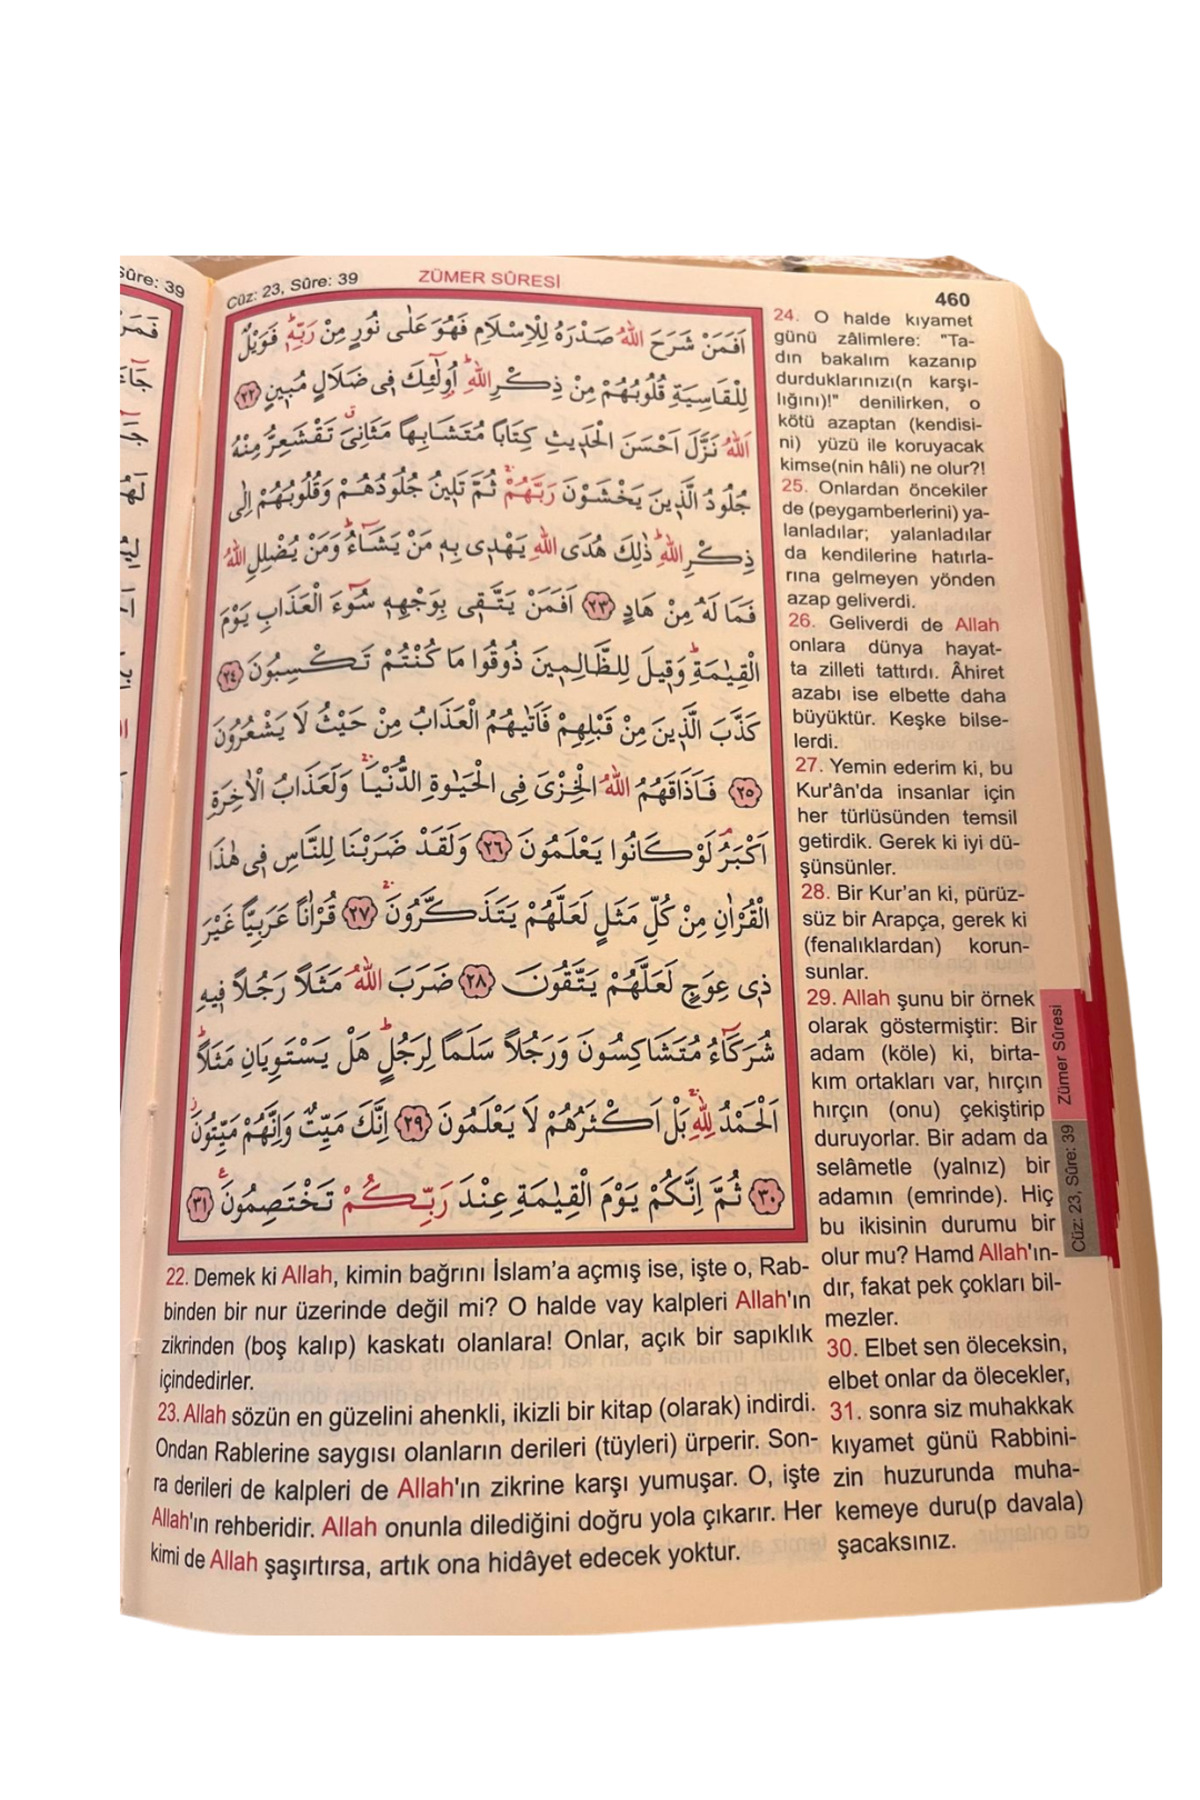 Sûre: 39
Cüz: 23, Sûre: 39
ZÜMER SÛRESİ
460
اَفَمَنْ شَرَحَ اللّٰهُ صَدْرَهُ لِلْاِسْلَامِ فَهُوَ عَلٰى نُورٍ مِنْ رَبِّهٖۜ فَوَيْلٌ
لِلْقَاسِيَةِ قُلُوبُهُمْ مِنْ ذِكْرِ اللّٰهِۜ اُو۬لٰٓئِكَ فٖى ضَلَالٍ مُبٖينٍ ﴿٢٢﴾
اَللّٰهُ نَزَّلَ اَحْسَنَ الْحَدٖيثِ كِتَابًا مُتَشَابِهًا مَثَانِىَۗ تَقْشَعِرُّ مِنْهُ
جُلُودُ الَّذٖينَ يَخْشَوْنَ رَبَّهُمْۚ ثُمَّ تَلٖينُ جُلُودُهُمْ وَقُلُوبُهُمْ اِلٰى
ذِكْرِ اللّٰهِۜ ذٰلِكَ هُدَى اللّٰهِ يَهْدٖى بِهٖ مَنْ يَشَٓاءُۜ وَمَنْ يُضْلِلِ اللّٰهُ
فَمَا لَهُ مِنْ هَادٍ ﴿٢٣﴾ اَفَمَنْ يَتَّقٖى بِوَجْهِهٖ سُٓوءَ الْعَذَابِ يَوْمَ
الْقِيٰمَةِۜ وَقٖيلَ لِلظَّالِمٖينَ ذُوقُوا مَا كُنْتُمْ تَكْسِبُونَ ﴿٢٤﴾
كَذَّبَ الَّذٖينَ مِنْ قَبْلِهِمْ فَاَتٰيهُمُ الْعَذَابُ مِنْ حَيْثُ لَا يَشْعُرُونَ
﴿٢٥﴾ فَاَذَاقَهُمُ اللّٰهُ الْخِزْىَ فِى الْحَيٰوةِ الدُّنْيَاۚ وَلَعَذَابُ الْاٰخِرَةِ
اَكْبَرُۘ لَوْ كَانُوا يَعْلَمُونَ ﴿٢٦﴾ وَلَقَدْ ضَرَبْنَا لِلنَّاسِ فٖى هٰذَا
الْقُرْاٰنِ مِنْ كُلِّ مَثَلٍ لَعَلَّهُمْ يَتَذَكَّرُونَۚ ﴿٢٧﴾ قُرْاٰنًا عَرَبِيًّا غَيْرَ
ذٖى عِوَجٍ لَعَلَّهُمْ يَتَّقُونَ ﴿٢٨﴾ ضَرَبَ اللّٰهُ مَثَلًا رَجُلًا فٖيهِ
شُرَكَٓاءُ مُتَشَاكِسُونَ وَرَجُلًا سَلَمًا لِرَجُلٍۜ هَلْ يَسْتَوِيَانِ مَثَلًاۜ
اَلْحَمْدُ لِلّٰهِۚ بَلْ اَكْثَرُهُمْ لَا يَعْلَمُونَ ﴿٢٩﴾ اِنَّكَ مَيِّتٌ وَاِنَّهُمْ مَيِّتُونَۘ
﴿٣٠﴾ ثُمَّ اِنَّكُمْ يَوْمَ الْقِيٰمَةِ عِنْدَ رَبِّكُمْ تَخْتَصِمُونَ ﴿٣١﴾
22. Demek ki Allah, kimin bağrını İslam'a açmış ise, işte o, Rab-
binden bir nur üzerinde değil mi? O halde vay kalpleri Allah'ın
zikrinden (boş kalıp) kaskatı olanlara! Onlar, açık bir sapıklık
içindedirler.
23. Allah sözün en güzelini ahenkli, ikizli bir kitap (olarak) indirdi.
Ondan Rablerine saygısı olanların derileri (tüyleri) ürperir. Son-
ra derileri de kalpleri de Allah'ın zikrine karşı yumuşar. O, işte
Allah'ın rehberidir. Allah onunla dilediğini doğru yola çıkarır. Her
kimi de Allah şaşırtırsa, artık ona hidâyet edecek yoktur.
24. O halde kıyamet
günü zâlimlere: "Ta-
dın bakalım kazanıp
durduklarınızı(n karşı-
lığını)!" denilirken, o
kötü azaptan (kendisi-
ni) yüzü ile koruyacak
kimse(nin hâli) ne olur?!
25. Onlardan öncekiler
de (peygamberlerini) ya-
lanladılar; yalanladılar
da kendilerine hatırla-
rına gelmeyen yönden
azap geliverdi.
26. Geliverdi de Allah
onlara dünya hayat-
ta zilleti tattırdı. Âhiret
azabı ise elbette daha
büyüktür. Keşke bilse-
lerdi.
27. Yemin ederim ki, bu
Kur'ân'da insanlar için
her türlüsünden temsil
getirdik. Gerek ki iyi dü-
şünsünler.
28. Bir Kur'an ki, pürüz-
süz bir Arapça, gerek ki
(fenalıklardan) korun-
sunlar.
29. Allah şunu bir örnek
olarak göstermiştir: Bir
adam (köle) ki, birta-
kım ortakları var, hırçın
hırçın (onu) çekiştirip
duruyorlar. Bir adam da
selâmetle (yalnız) bir
adamın (emrinde). Hiç
bu ikisinin durumu bir
olur mu? Hamd Allah'ın-
dır, fakat pek çokları bil-
mezler.
30. Elbet sen öleceksin,
elbet onlar da ölecekler,
31. sonra siz muhakkak
kıyamet günü Rabbini-
zin huzurunda muha-
kemeye duru(p davala)
şacaksınız.
Zümer Sûresi
Cüz: 23, Sûre: 39